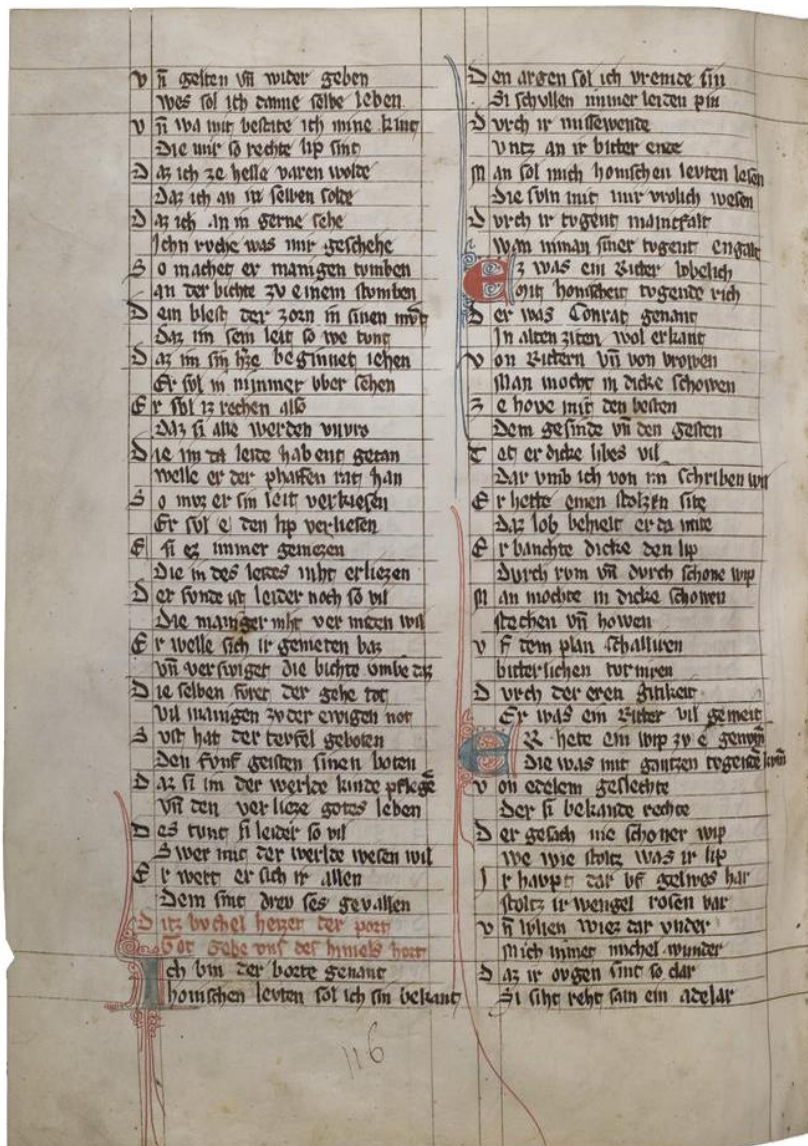 Vn̄ gelten vn̄ wider geben
Wes sol ich danne selbe leben
Vn̄ wa mit bestate ich mine kint
Die mir so rechte lip sint
Daz ich ze helle varen wolde
Daz ich an in selben solde
Daz ich an in gerne sehe
Ichn ruche was mir geschehe
So machet er manigen tumben
an der bichte zu einem stumben
Dem blest der zorn in sinen můt
Daz im sein leit so we tunt
Daz im sin h̄ze beginnet iehen
Er sol in nimmer vber sehen
Er sol iz rechen also
Daz si alle werden vnvro
Die im da leide habent getan
welle er der phaffen rat han
So muz er sin leit verkiesen
Er sol e den lip verliesen
E si ez immer geniezen
Die in des leides niht erliezen
Der sunde ist leider noch so vil
Die maniger niht ver miden wil
Er welle sich ir genieten baz
vn̄ verswiget die bichte vmbe daz
Die selben furet der gehe tot
vil manigen zu der ewigen not
Sust hat der teufel geboten
Den funf geisten sinen boten
Daz si im der werlde kinde pflegē
vn̄ den verlieze gotes leben
Des tunt si leider so vil
Swer mit der werlde wesen wil
Er wert er sich ir allen
Dem sint drev ses gevallen
Ditz buchel heizet der port
Got gebe uns des himels hort
Ich bin der borte genant
hovischen levten sol ich sin bekant
116
Den argen sol ich vremde sin
Si schullen immer leiden pin
Durch ir missewende
vntz an ir bitter ende
Man sol mich hovischen levten lesen
Die suln mit mir vrolich wesen
Durch ir tvgent manicfalt
wan niman siner tvgent engalt
Ez was ein Ritter lobelich
Mit hovischeit tvgende rich
Der was Conrat genant
In alten ziten wol erkant
Von Rittern vn̄ von vrowen
Man mocht in dicke schowen
Ze hove mit den besten
Dem gesinde vn̄ den gesten
Tet er dicke libes vil
Dar vmb ich von im schriben wil
Er hette einen stolzen site
Daz lob behielt er da mite
Er banchte dicke den lip
Durch rum vn̄ durch schone wip
Man mochte in dicke schowen
stechen vn̄ howen
Vf dem plan schallirren
bitterlichen turniren
Durch der eren gitikeit
Er was ein Ritter vil gemeit
ER hete ein wip zu é genoṁ
Die was mit gantzen tvgendē kvm̄
Von edelem geslechte
Der si bekande rechte
Der gesach nie schoner wip
we wie stoltz was ir lip
Ir haupt dar vf gelwes har
stoltz ir wengel rosen var
Vn̄ lylien wiez dar vnder
Mich nimet michel wunder
Daz ir ovgen sint so clar
Si siht reht sam ein adelar